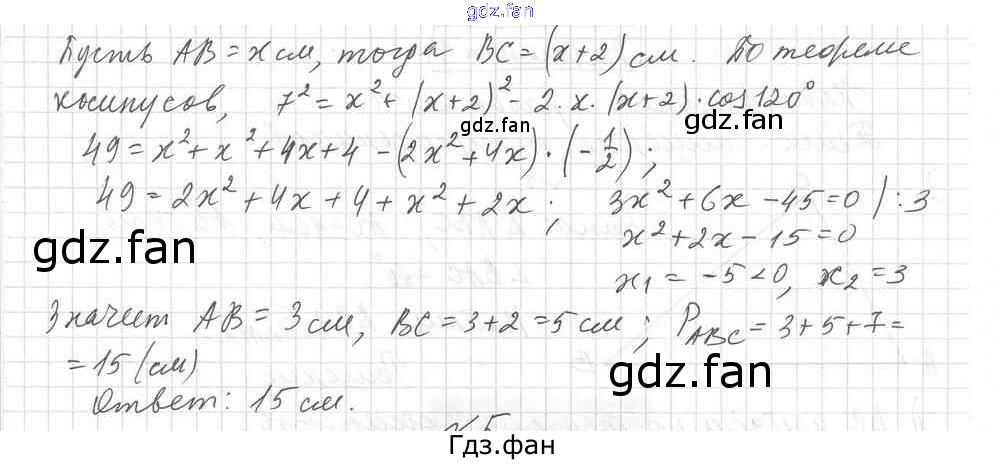 gdz.fan
Пусть AB = x см, тогда BC = (x+2) см. По теореме
косинусов, 7² = x² + (x+2)² - 2·x·(x+2)·cos120°
gdz.fan gdz.fan
49 = x² + x² + 4x + 4 - (2x² + 4x)·(-1/2);
49 = 2x² + 4x + 4 + x² + 2x; 3x² + 6x - 45 = 0 |:3
gdz.fan
x² + 2x - 15 = 0
x₁ = -5 < 0, x₂ = 3
Значит AB = 3 см, BC = 3+2 = 5 см; P_ABC = 3+5+7 =
= 15 (см)
gdz.fan
Ответ: 15 см.
Гдз.фан